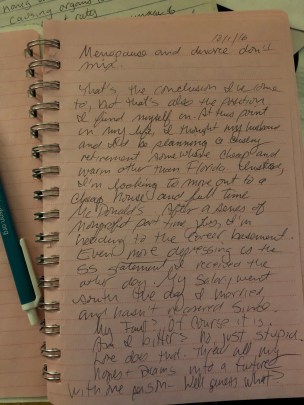 causing organ
rates
12/1/16
Menopause and divorce don't
mix.
That's the conclusion I've come
to, but that's also the position
I find myself in. At this point
in my life, I thought my husband
and I'd be planning a
retirement somewhere cheap and
warm other than Florida. Instead,
I'm looking to move out to a
cheap house and full time
McDonald's. After a series of
nonprofit part time jobs, I'm
heading to the
Even more depressing is the
SS statement I received the
other day. My salary went
south the day I married,
and hasn't recovered since.
My fault? Of course it is.
Am I bitter? No, just stupid.
Love does that. Threw all my
hopes & dreams into a future
with one person. Well guess what?